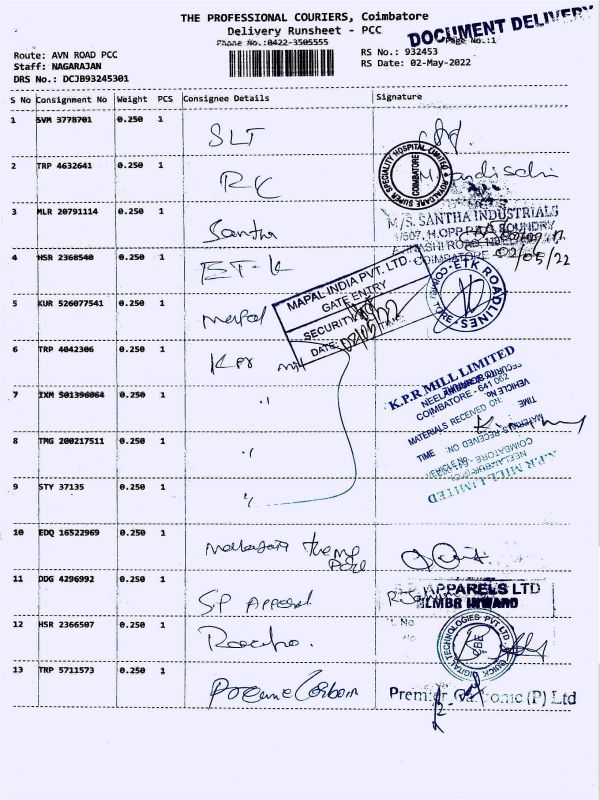 THE PROFESSIONAL COURIERS, Coimbatore
Delivery Runsheet - PCC
DOCUMENT DELIVERY
Phone No.:0422-3505555
Page No.:1
Route: AVN ROAD PCC
RS No.: 932453
Staff: NAGARAJAN
RS Date: 02-May-2022
DRS No.: DCJB93245301
S No Consignment No Weight PCS Consignee Details Signature
1 SVM 3778701 0.250 1 SLT
2 TRP 4632641 0.250 1 RK
SUPER SPECIALITY HOSPITAL LIMITED ROYALCARE
COIMBATORE
3 MLR 20791114 0.250 1 Santha
M/S. SANTHA INDUSTRIALS
COIMBATORE
02/05/22
4 HSR 2368540 0.250 1 ET-K
ETK ROADLINES
MAPAL INDIA PVT. LTD.
GATE ENTRY
SECURITY
DATE:
5 KUR 526077541 0.250 1 Mapal
6 TRP 4042306 0.250 1 KPR mill
K.P.R MILL LIMITED
COIMBATORE - 641 062
VEHICLE NO:
MATERIALS RECEIVED ON:
TIME
7 IXM 501396064 0.250 1 "
8 TMG 200217511 0.250 1 "
9 STY 37135 0.250 1 "
K.P.R MILL LIMITED
10 EDQ 16522969 0.250 1
11 DDG 4296992 0.250 1 SP Apparel
APPARELS LTD
12 HSR 2366507 0.250 1
QUICK DIGITAL TECHNOLOGIES PVT LTD
CBE
13 TRP 5711573 0.250 1
(P) Ltd